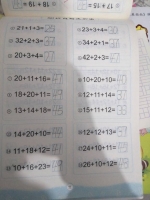 17+15=
18+19=
21+1+3=
23+3+4=
32+2+3=
34+2+1=
20+3+4=
42+2+3=
20+11+16=
10+20+10=
18+20+11=
12+11+14=
13+14+18=
15+11+12=
14+20+10=
12+12+13=
11+18+12=
24+10+11=
10+16+23=
26+10+12=